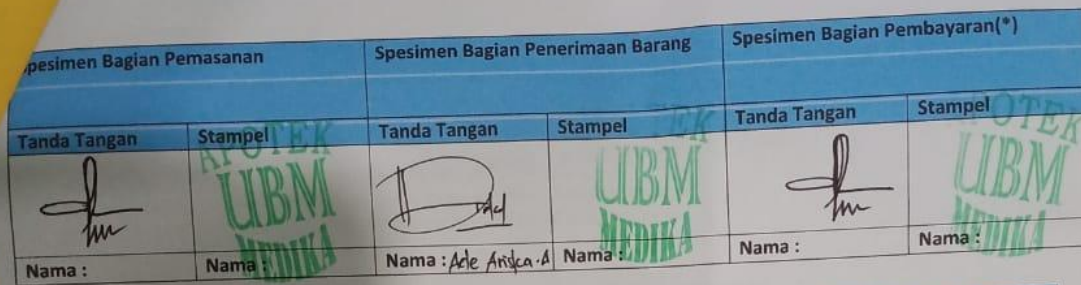 pesimen Bagian Pemasanan
Spesimen Bagian Penerimaan Barang
Spesimen Bagian Pembayaran(*)
Tanda Tangan
Stampel
Tanda Tangan
Stampel
Tanda Tangan
Stampel
APOTEK
UBM
MEDIKA
UBM
MEDIKA
APOTEK
UBM
MEDIKA
Nama :
Nama :
Nama : Ade Ariska.A
Nama :
Nama :
Nama :